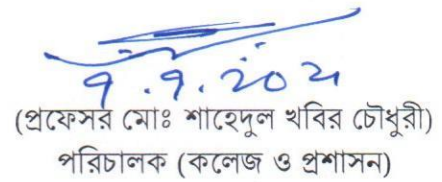 ৭.৭.২০২১
(প্রফেসর মোঃ শাহেদুল খবির চৌধুরী)
পরিচালক (কলেজ ও প্রশাসন)